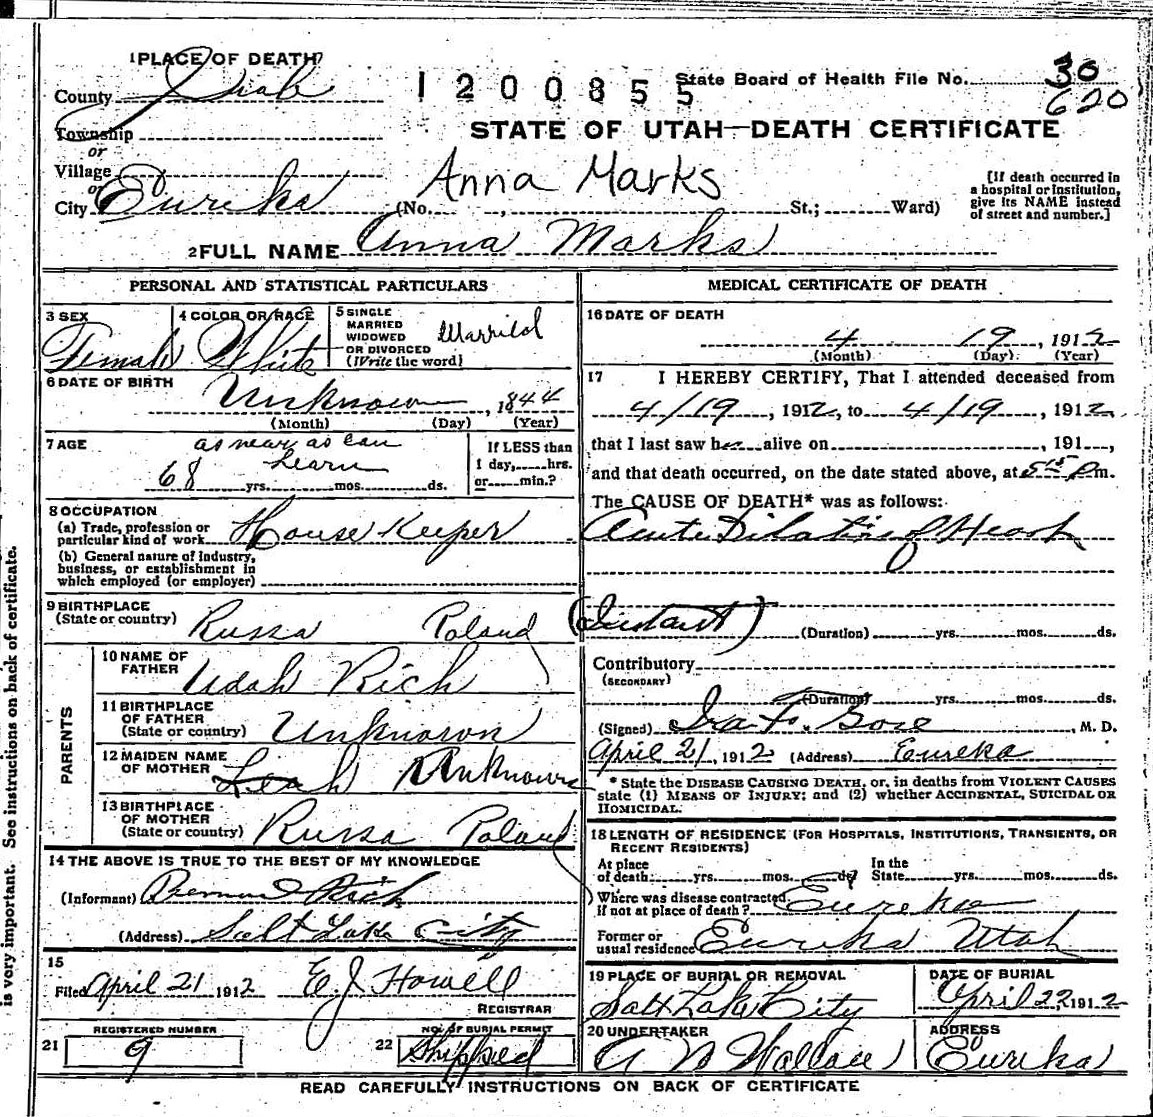 1 PLACE OF DEATH
County Juab
1200855
State Board of Health File No. 30
620
Township
or
STATE OF UTAH—DEATH CERTIFICATE
Village
or
City Eureka
Anna Marks
(No. , St.; Ward)
[If death occurred in
a hospital or institution,
give its NAME instead
of street and number.]
2 FULL NAME Anna Marks
PERSONAL AND STATISTICAL PARTICULARS
3 SEX
Female
4 COLOR OR RACE
White
5 SINGLE
MARRIED
WIDOWED
OR DIVORCED
(Write the word)
Married
6 DATE OF BIRTH
Unknown, 1844
(Month) (Day) (Year)
7 AGE
as near as can
learn
68 yrs. mos. ds.
If LESS than
1 day, hrs.
or min.?
8 OCCUPATION
(a) Trade, profession or
particular kind of work House Keeper
(b) General nature of industry,
business, or establishment in
which employed (or employer)
9 BIRTHPLACE
(State or country) Russa Poland
PARENTS
10 NAME OF
FATHER Udah Rich
11 BIRTHPLACE
OF FATHER
(State or country) Unknown
12 MAIDEN NAME
OF MOTHER Leah Unknown
13 BIRTHPLACE
OF MOTHER
(State or country) Russa Poland
14 THE ABOVE IS TRUE TO THE BEST OF MY KNOWLEDGE
(Informant) Bernard Rich
(Address) Salt Lake City
15
Filed April 21 1912 E. J. Howell
REGISTRAR
REGISTERED NUMBER
21 9
NO. OF BURIAL PERMIT
22 Shipped
MEDICAL CERTIFICATE OF DEATH
16 DATE OF DEATH
4 19, 1912
(Month) (Day) (Year)
17 I HEREBY CERTIFY, That I attended deceased from
4/19, 1912, to 4/19, 1912,
that I last saw her alive on , 191 ,
and that death occurred, on the date stated above, at 5 15 P m.
The CAUSE OF DEATH* was as follows:
Acute Dilation of Heart
(Instant) (Duration) yrs. mos. ds.
Contributory
(SECONDARY)
(Duration) yrs. mos. ds.
(Signed) , M. D.
April 21, 1912 (Address) Eureka
* State the DISEASE CAUSING DEATH, or, in deaths from VIOLENT CAUSES
state (1) MEANS OF INJURY; and (2) whether ACCIDENTAL, SUICIDAL OR
HOMICIDAL.
18 LENGTH OF RESIDENCE (FOR HOSPITALS, INSTITUTIONS, TRANSIENTS, OR
RECENT RESIDENTS)
At place
of death yrs. mos. ds.
In the
State yrs. mos. ds.
Where was disease contracted
if not at place of death? Eureka
Former or
usual residence Eureka Utah
19 PLACE OF BURIAL OR REMOVAL
Salt Lake City
DATE OF BURIAL
April 22, 1912
20 UNDERTAKER
A N Wallace
ADDRESS
Eureka
READ CAREFULLY INSTRUCTIONS ON BACK OF CERTIFICATE
is very important. See instructions on back of certificate.